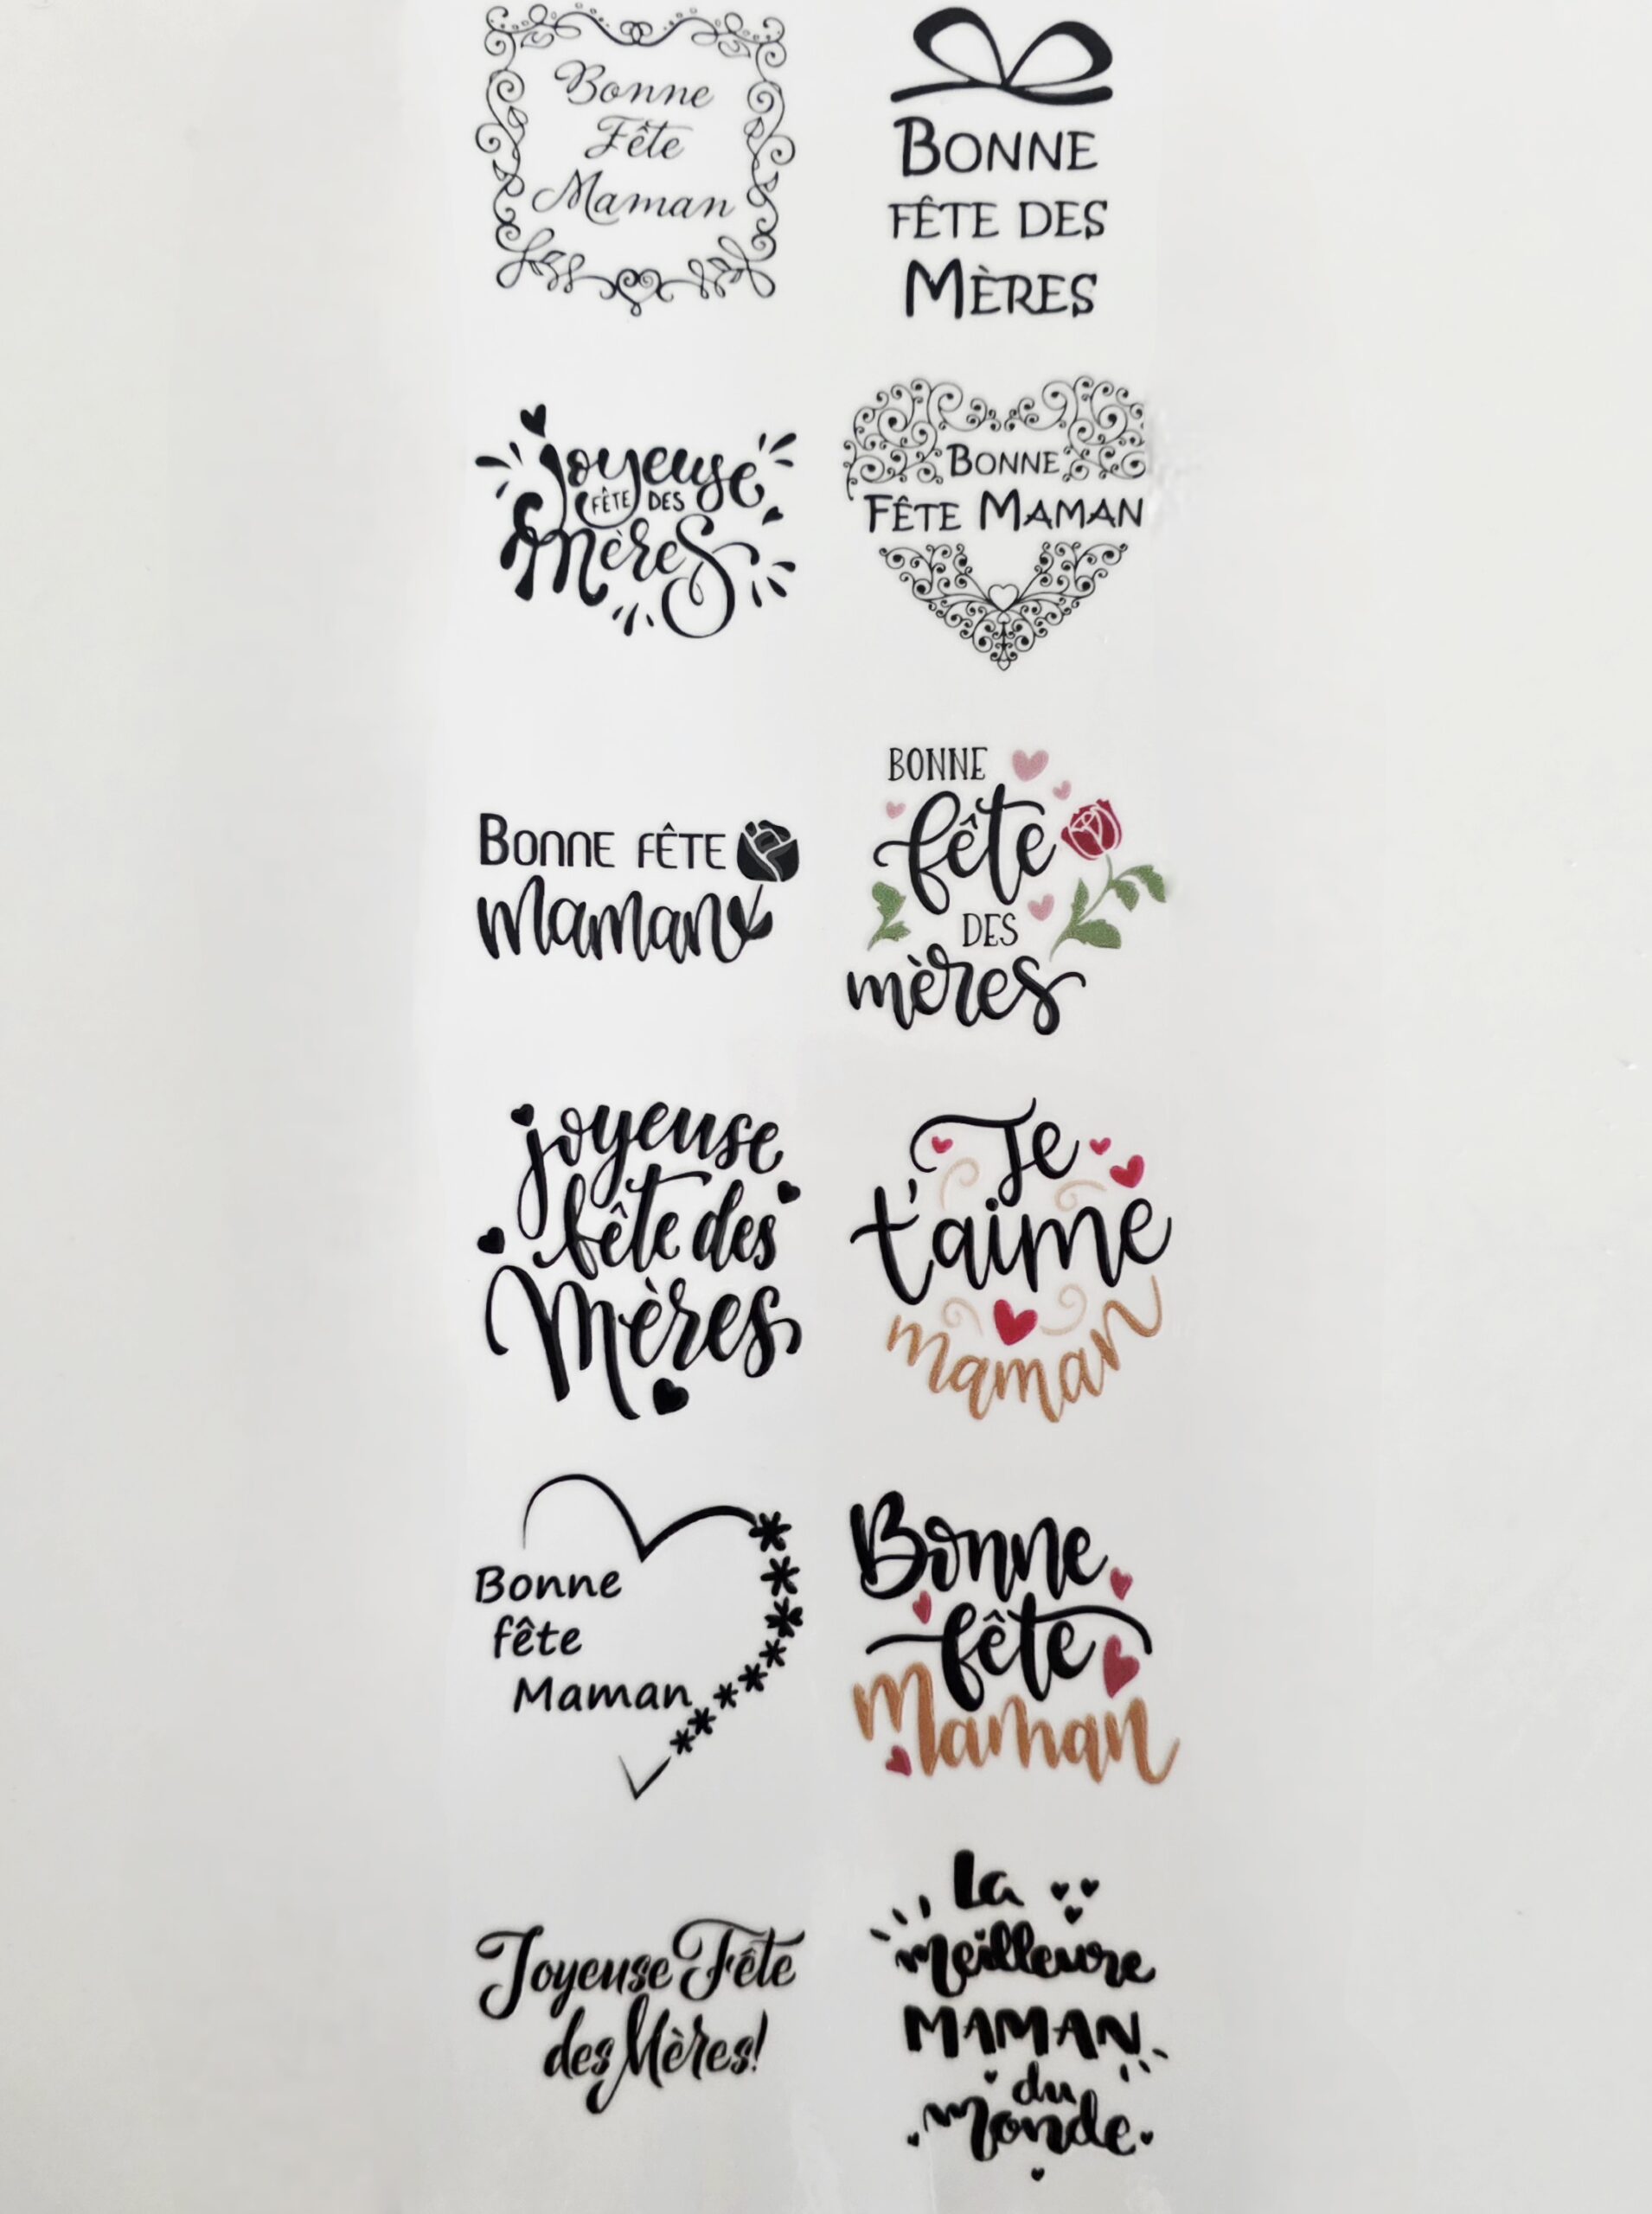 Bonne
Fête
Maman
BONNE
FÊTE DES
MÈRES
Joyeuse
FÊTE DES
Mères
BONNE
FÊTE MAMAN
BONNE FÊTE
Maman
BONNE
fête
DES
mères
joyeuse
fête des
Mères
Je
t'aime
maman
Bonne
fête
Maman
Bonne
fête
Maman
Joyeuse Fête
des Mères!
La
meilleure
MAMAN
du
monde